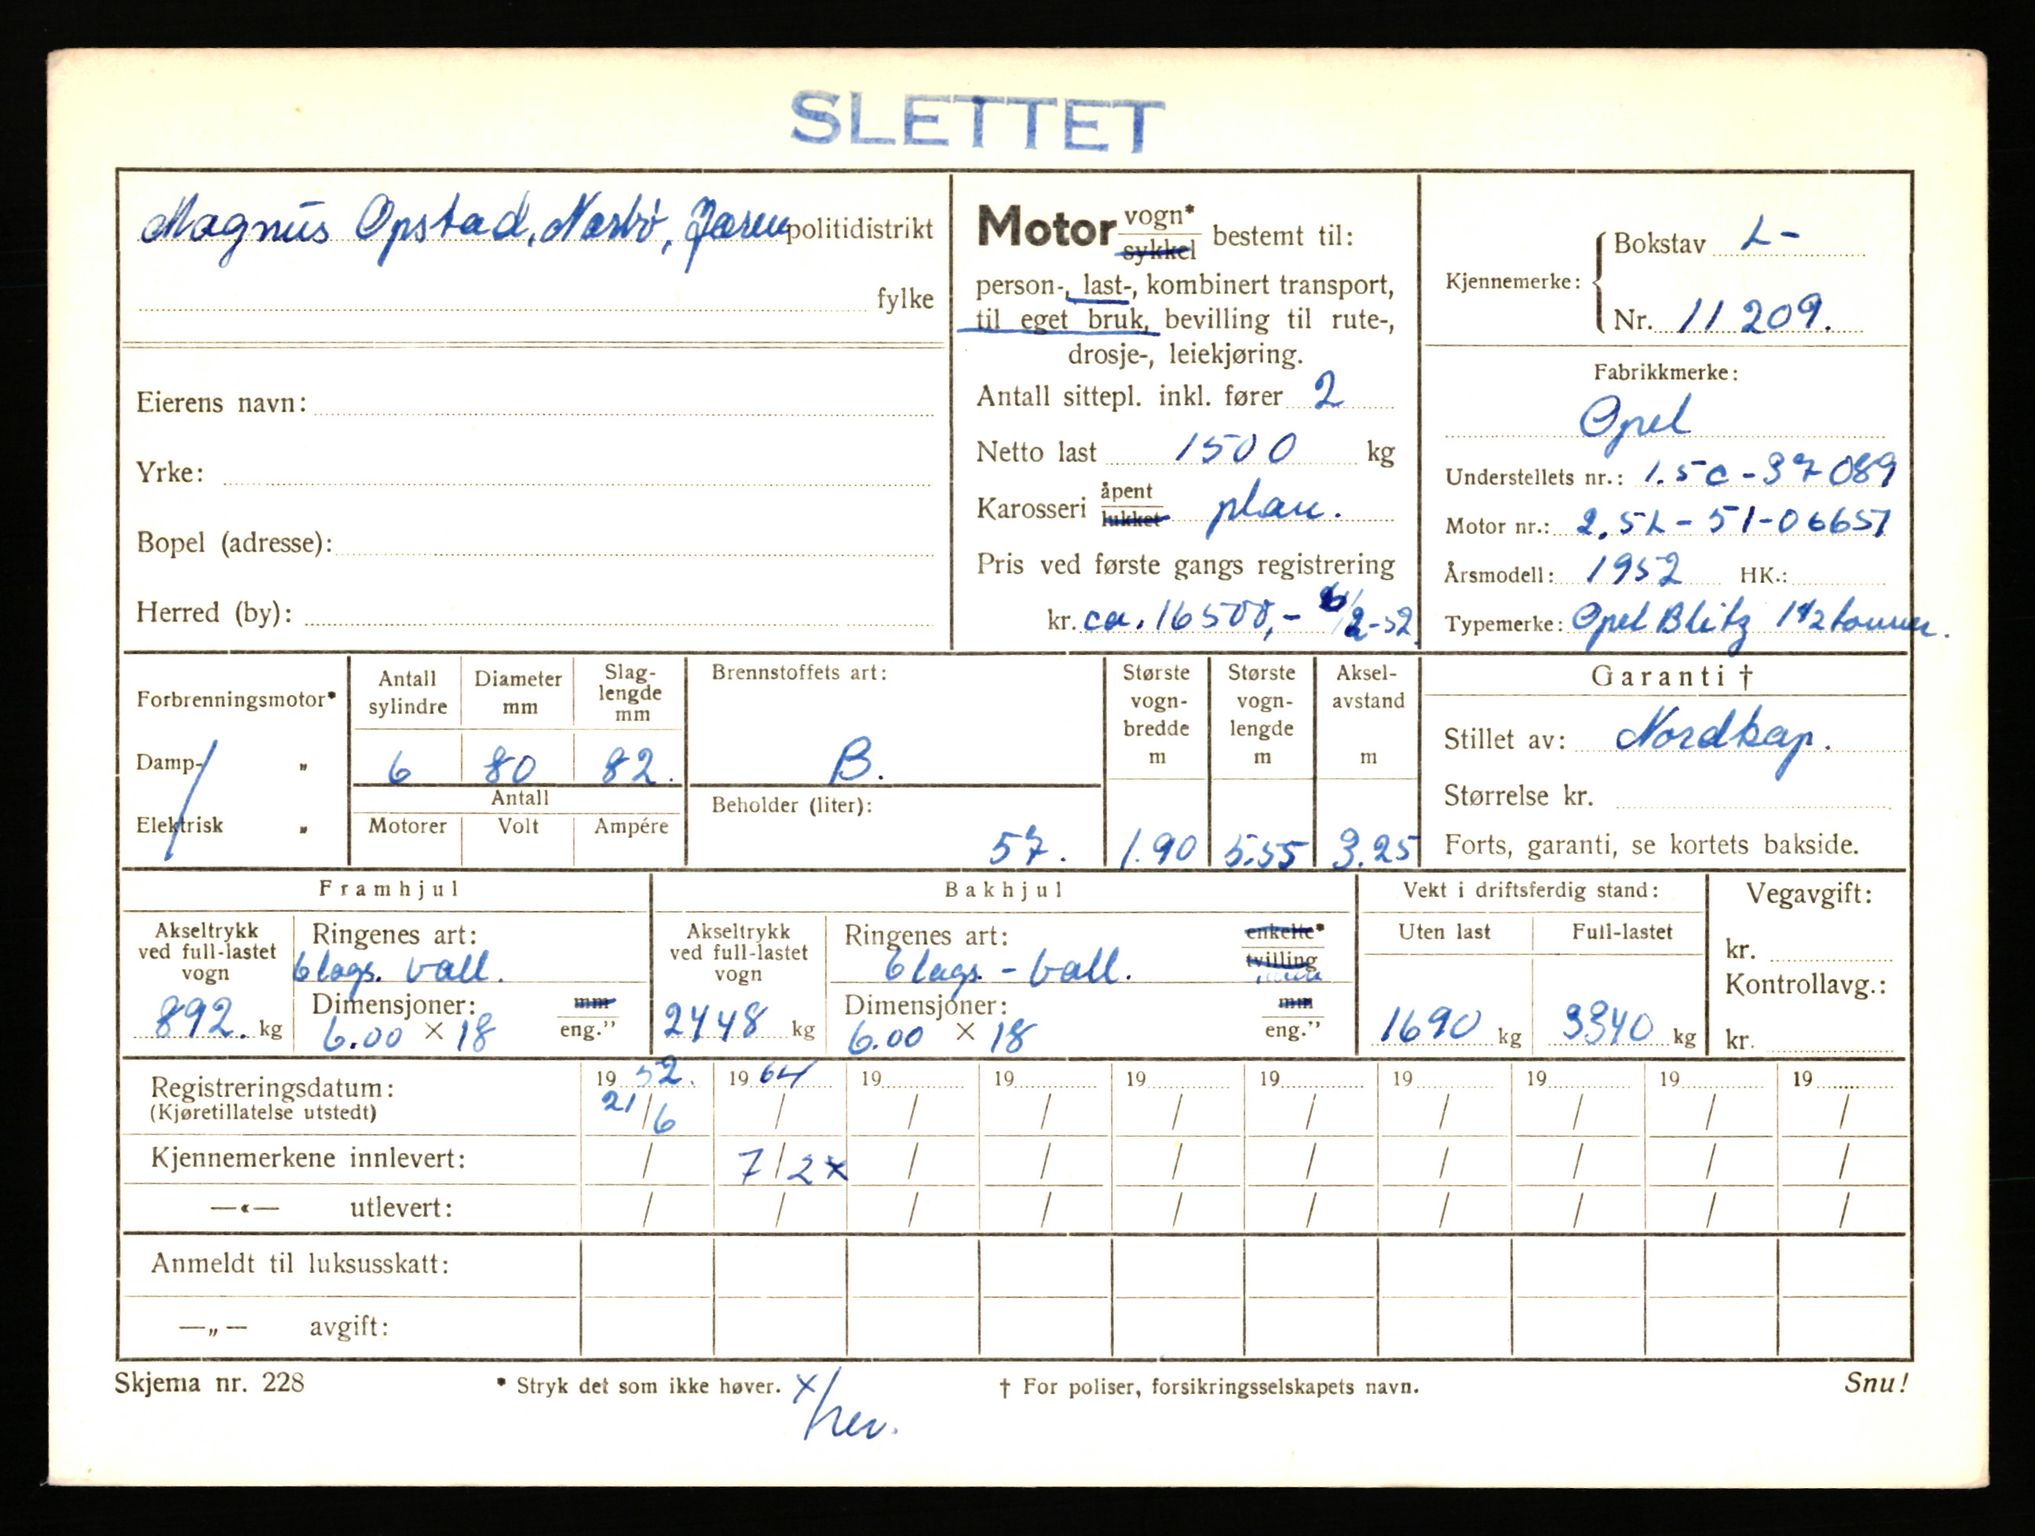 SLETTET
Magnus Opstad, Nærbø, Jæren politidistrikt
fylke
Eierens navn:
Yrke:
Bopel (adresse):
Herred (by):
Motor vogn* sykkel bestemt til:
person-, last-, kombinert transport,
til eget bruk, bevilling til rute-,
drosje-, leiekjøring.
Antall sittepl. inkl. fører 2
Netto last 1500 kg
Karosseri åpent lukket plan.
Pris ved første gangs registrering
kr. ca. 16500,- 6/2-52
Kjennemerke: Bokstav L-
Nr. 11209.
Fabrikkmerke:
Opel
Understellets nr.: 1.5C-37089
Motor nr.: 2.5L-51-06651
Årsmodell: 1952 HK.:
Typemerke: Opel Blitz 1 1/2 tonner.
Forbrenningsmotor*
Damp- „
Elektrisk „
Antall sylindre Diameter mm Slag-lengde mm
6 80 82.
Antall
Motorer Volt Ampére
Brennstoffets art:
B.
Beholder (liter):
57.
Største vogn-bredde m Største vogn-lengde m Aksel-avstand m
1.90 5.55 3.25
Garanti †
Stillet av: Nordkap.
Størrelse kr.
Forts, garanti, se kortets bakside.
Framhjul
Akseltrykk ved full-lastet vogn
892. kg
Ringenes art:
6 lags. ball.
Dimensjoner: mm
6.00 × 18 eng.”
Bakhjul
Akseltrykk ved full-lastet vogn
2448 kg
Ringenes art: enkelte*
6 lags. - ball. tvilling
Dimensjoner: mm
6.00 × 18 eng.”
Vekt i driftsferdig stand:
Uten last Full-lastet
1690 kg 3340 kg
Vegavgift:
kr.
Kontrollavg.:
kr.
Registreringsdatum: 19 52. 19 64 19 19 19 19 19 19 19 19
(Kjøretillatelse utstedt) 21/6 / / / / / / / / /
Kjennemerkene innlevert: / 7/2 x / / / / / / / /
—«— utlevert: / / / / / / / / / /
Anmeldt til luksusskatt:
—„— avgift:
Skjema nr. 228 * Stryk det som ikke høver. † For poliser, forsikringsselskapets navn. Snu!
x/her.